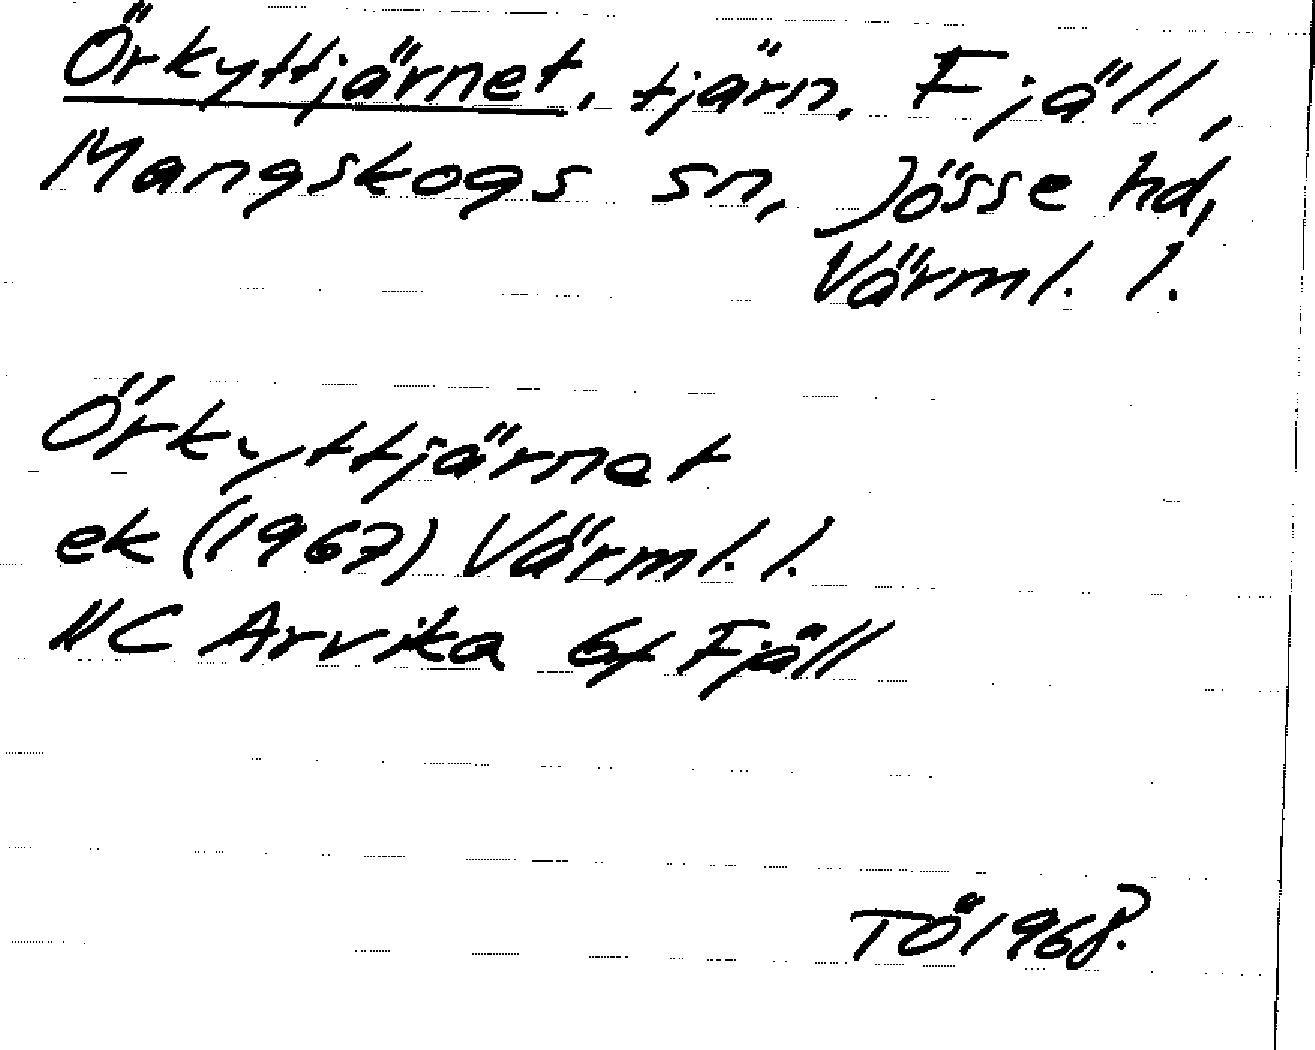 Örkyttjärnet, tjärn, Fjäll,
Mangskogs sn, Jösse hd,
Värml. l.
Örkyttjärnet
ek (1967) Värml. l.
11C Arvika 6f Fjäll
TÖ 1968.